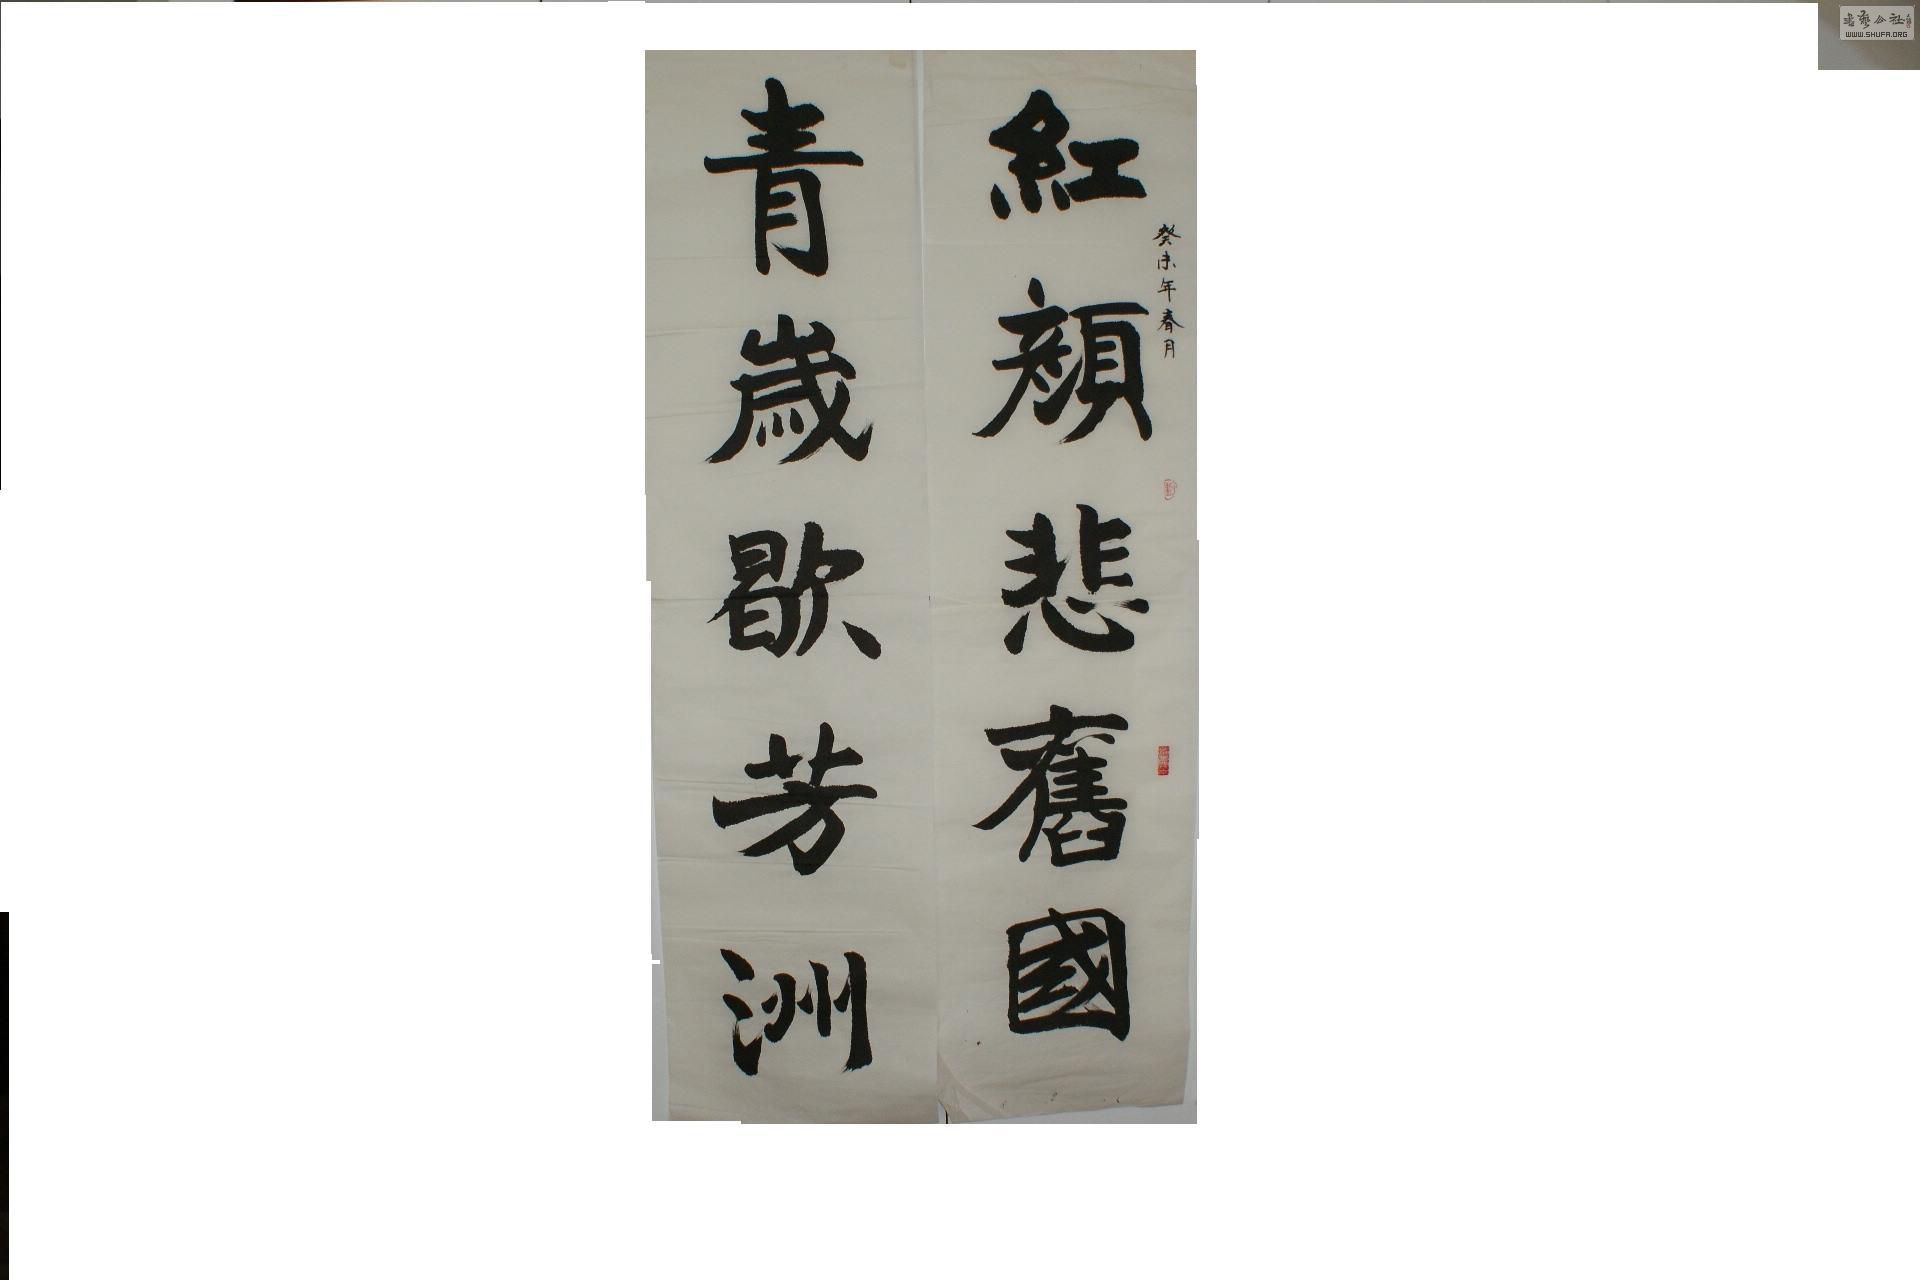 紅顏悲舊國
癸未年春月
青歲歇芳洲
書藝公社
WWW.SHUFA.ORG